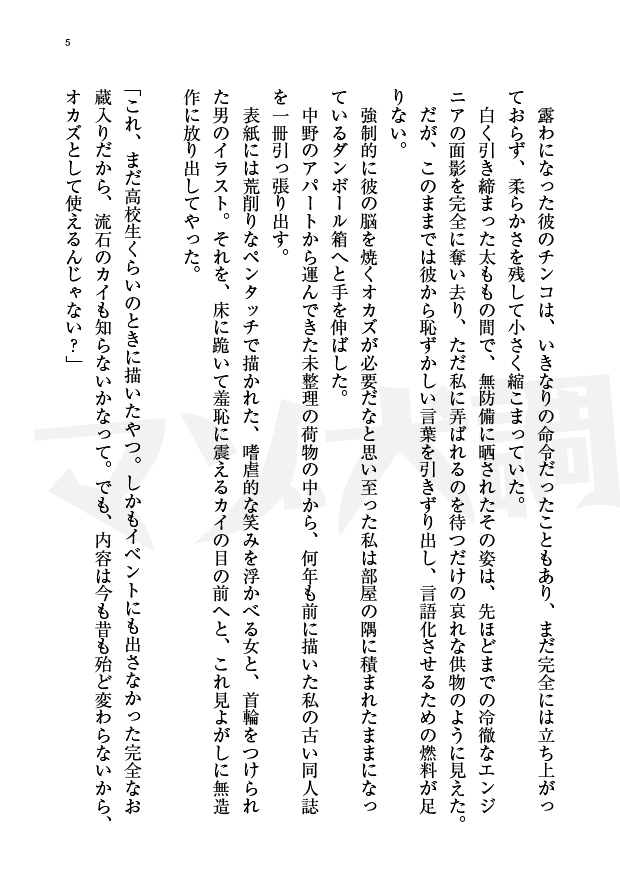 5
露わになった彼のチンコは、いきなりの命令だったこともあり、まだ完全には立ち上がっ
ておらず、柔らかさを残して小さく縮こまっていた。
白く引き締まった太ももの間で、無防備に晒されたその姿は、先ほどまでの冷徹なエンジ
ニアの面影を完全に奪い去り、ただ私に弄ばれるのを待つだけの哀れな供物のように見えた。
だが、このままでは彼から恥ずかしい言葉を引きずり出し、言語化させるための燃料が足
りない。
強制的に彼の脳を焼くオカズが必要だなと思い至った私は部屋の隅に積まれたままになっ
ているダンボール箱へと手を伸ばした。
中野のアパートから運んできた未整理の荷物の中から、何年も前に描いた私の古い同人誌
を一冊引っ張り出す。
表紙には荒削りなペンタッチで描かれた、嗜虐的な笑みを浮かべる女と、首輪をつけられ
た男のイラスト。それを、床に跪いて羞恥に震えるカイの目の前へと、これ見よがしに無造
作に放り出してやった。
「これ、まだ高校生くらいのときに描いたやつ。しかもイベントにも出さなかった完全なお
蔵入りだから、流石のカイも知らないかなって。でも、内容は今も昔も殆ど変わらないから、
オカズとして使えるんじゃない？」